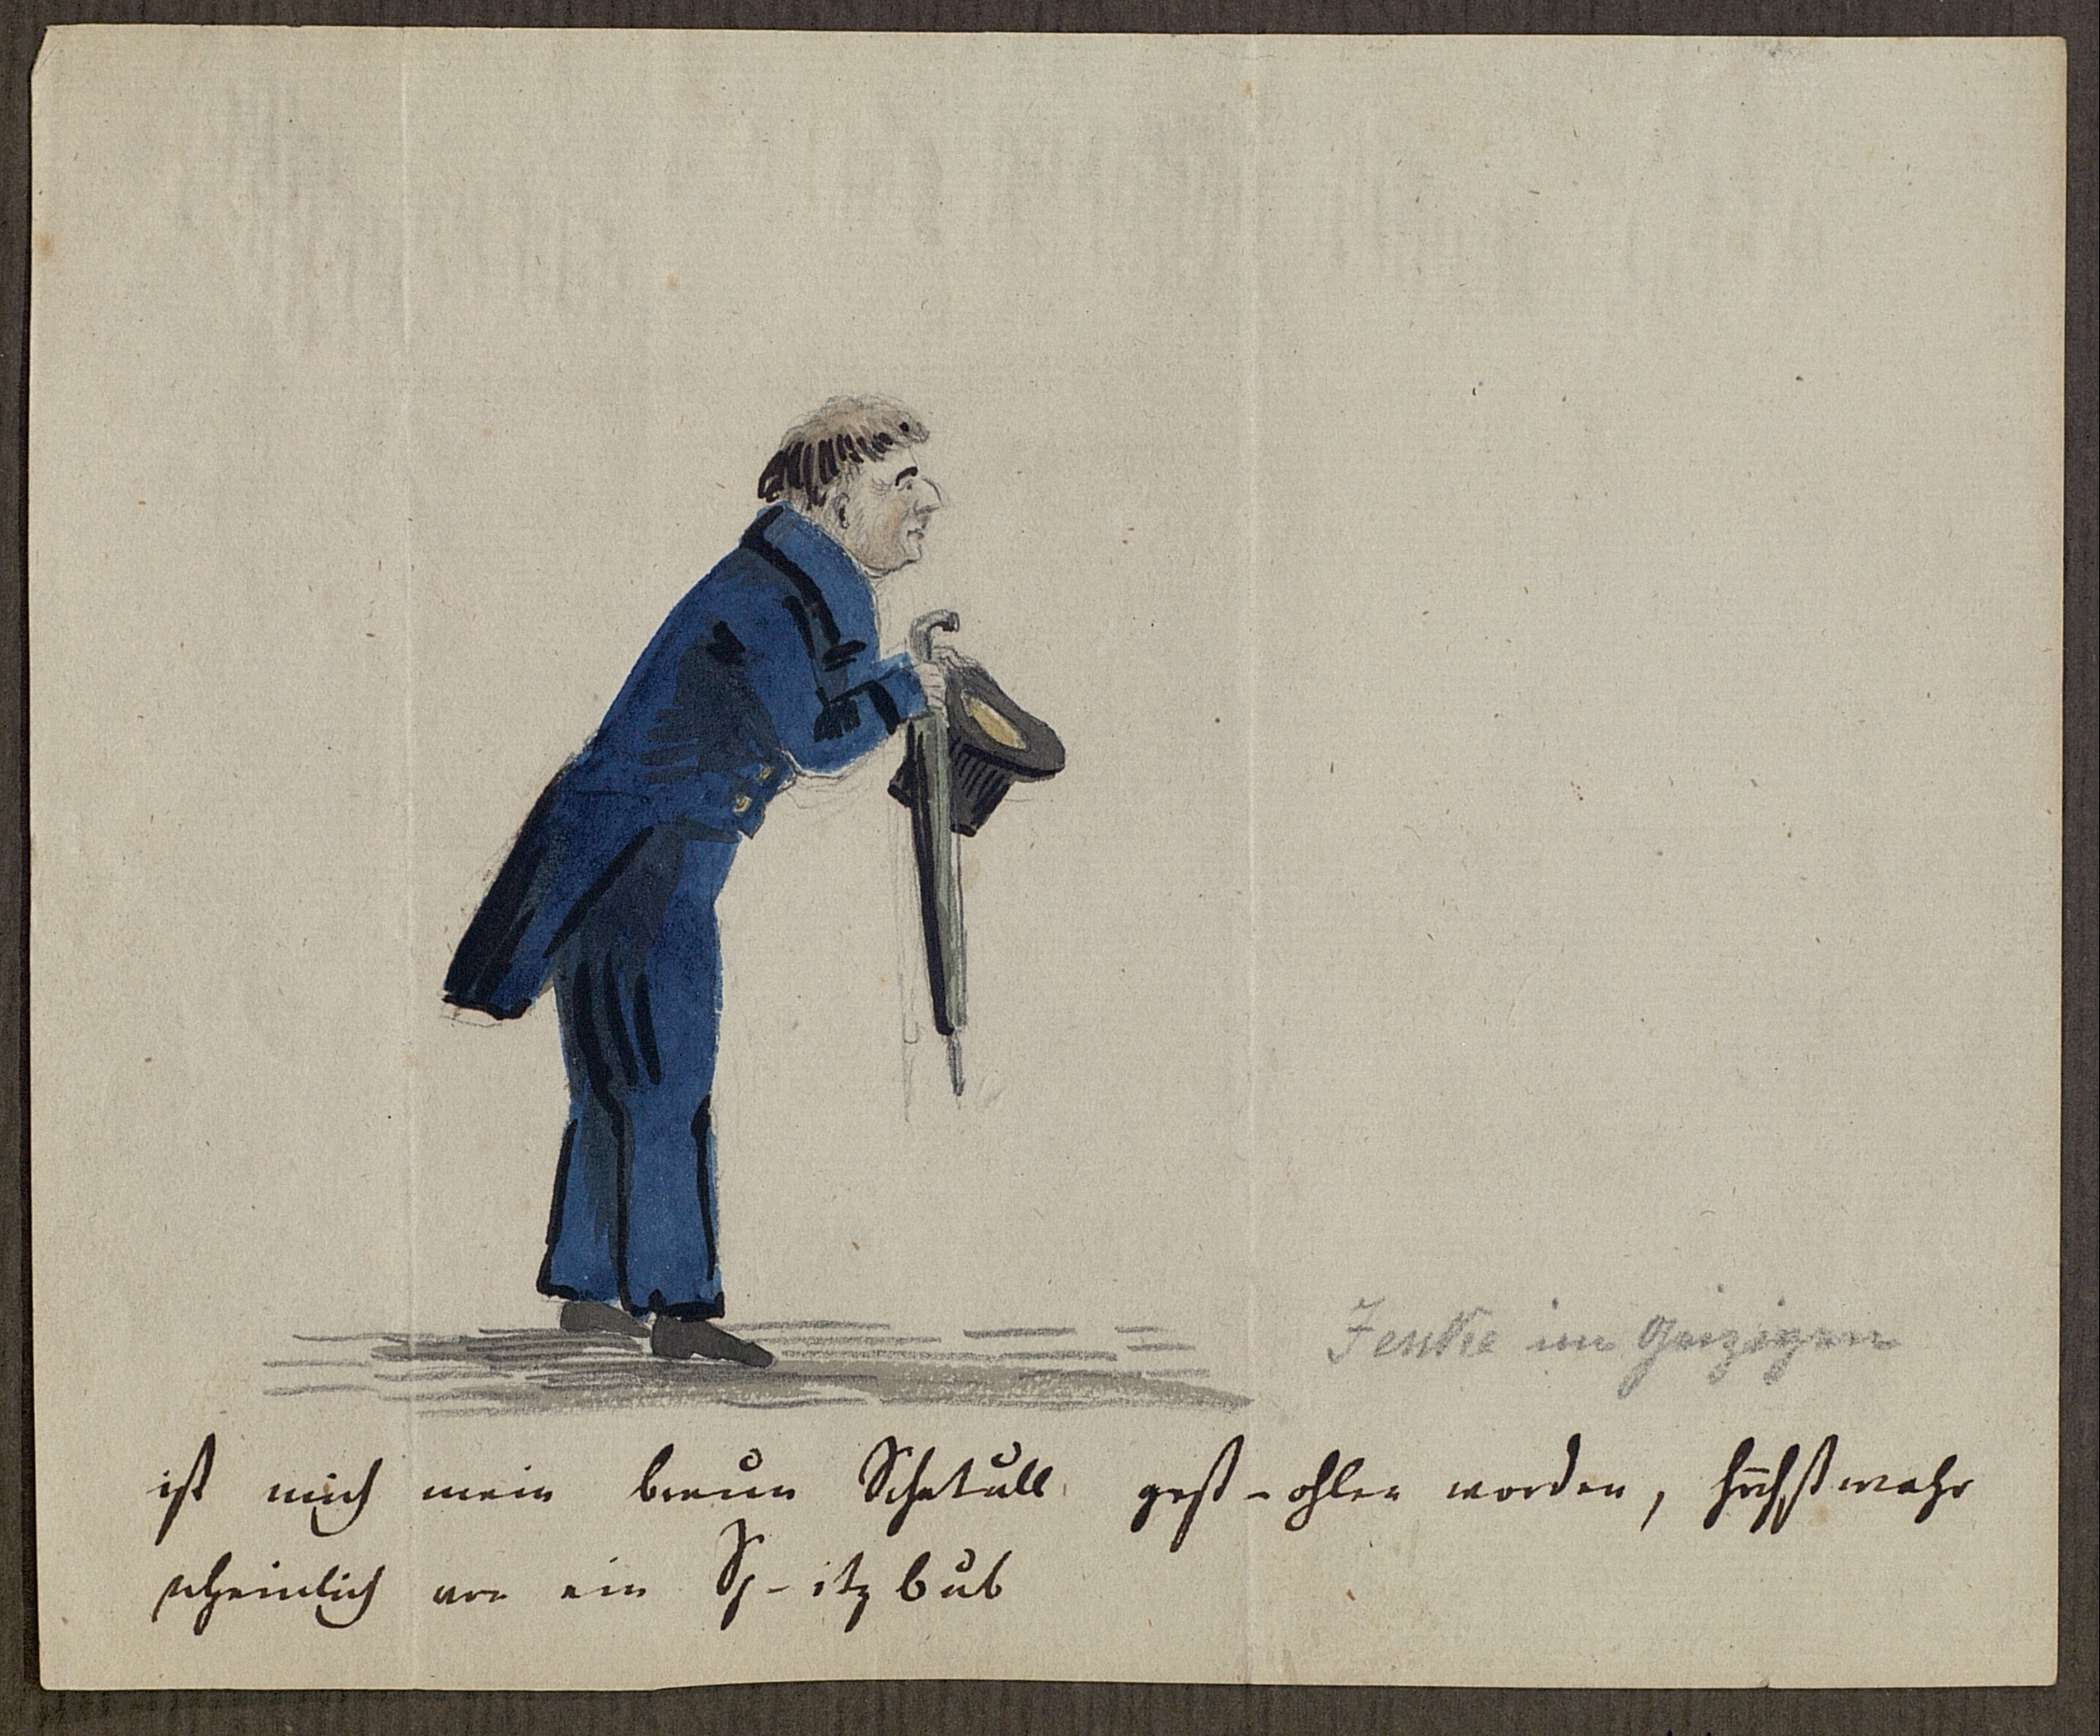 Jenke im Geizigen
ist mich mein braun Schatull gest-ohlen worden, höchstwahr
scheinlich von ein Sp-itzbub